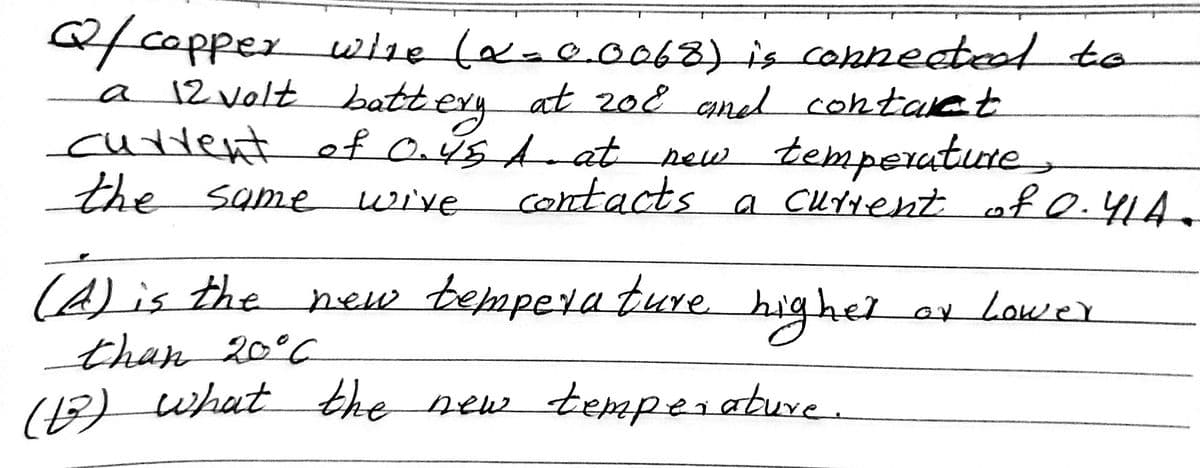 Q/ copper wire (α=0.0068) is connected to
a 12 volt battery at 20c and contact
current of 0.45 A. at new temperature,
the same wire contacts a current of 0.41A.
(A) is the new temperature higher or Lower
than 20°C
(B) what the new temperature.